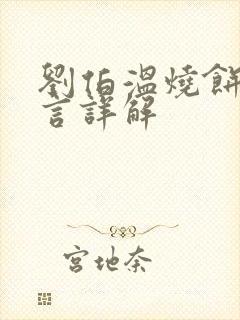 劉伯溫燒餅
言詳解
宮地奈